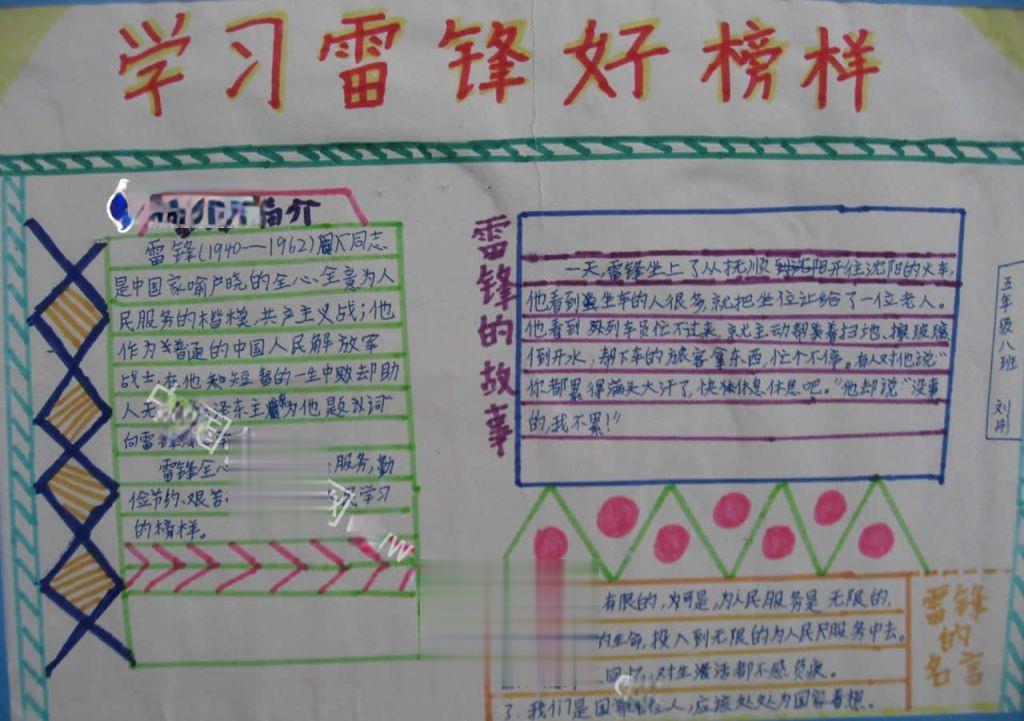 学习雷锋好榜样
简介
雷锋(1940—1962)同志
是中国家喻户晓的全心、全意为人
民服务的楷模,共产主义战;他
作为普通的中国人民解放军
战士,在他短暂的一生中却助
人无 泽东主 为他题词
向雷锋
雷锋全心 服务,勤
俭节约、艰苦 学习
的榜样。
雷锋的故事
一天,雷锋坐上了从抚顺 开往沈阳的火车,
他看到坐车的人很多,就把坐位让给了一位老人。
他看到列车员忙不过来,就主动帮着扫地、擦玻璃
倒开水,帮下车的旅客拿东西,忙个不停。有人对他说"
你都累得满头大汗了,快休息休息吧。"他却说"没事
的,我不累!"
五年级八班
刘
有限的,可是,为人民服务是无限的,
生命,投入到无限的为人民服务中去。
对生活都不感
3、我们是国家 人,应该处处为国家着想。
雷锋的名言